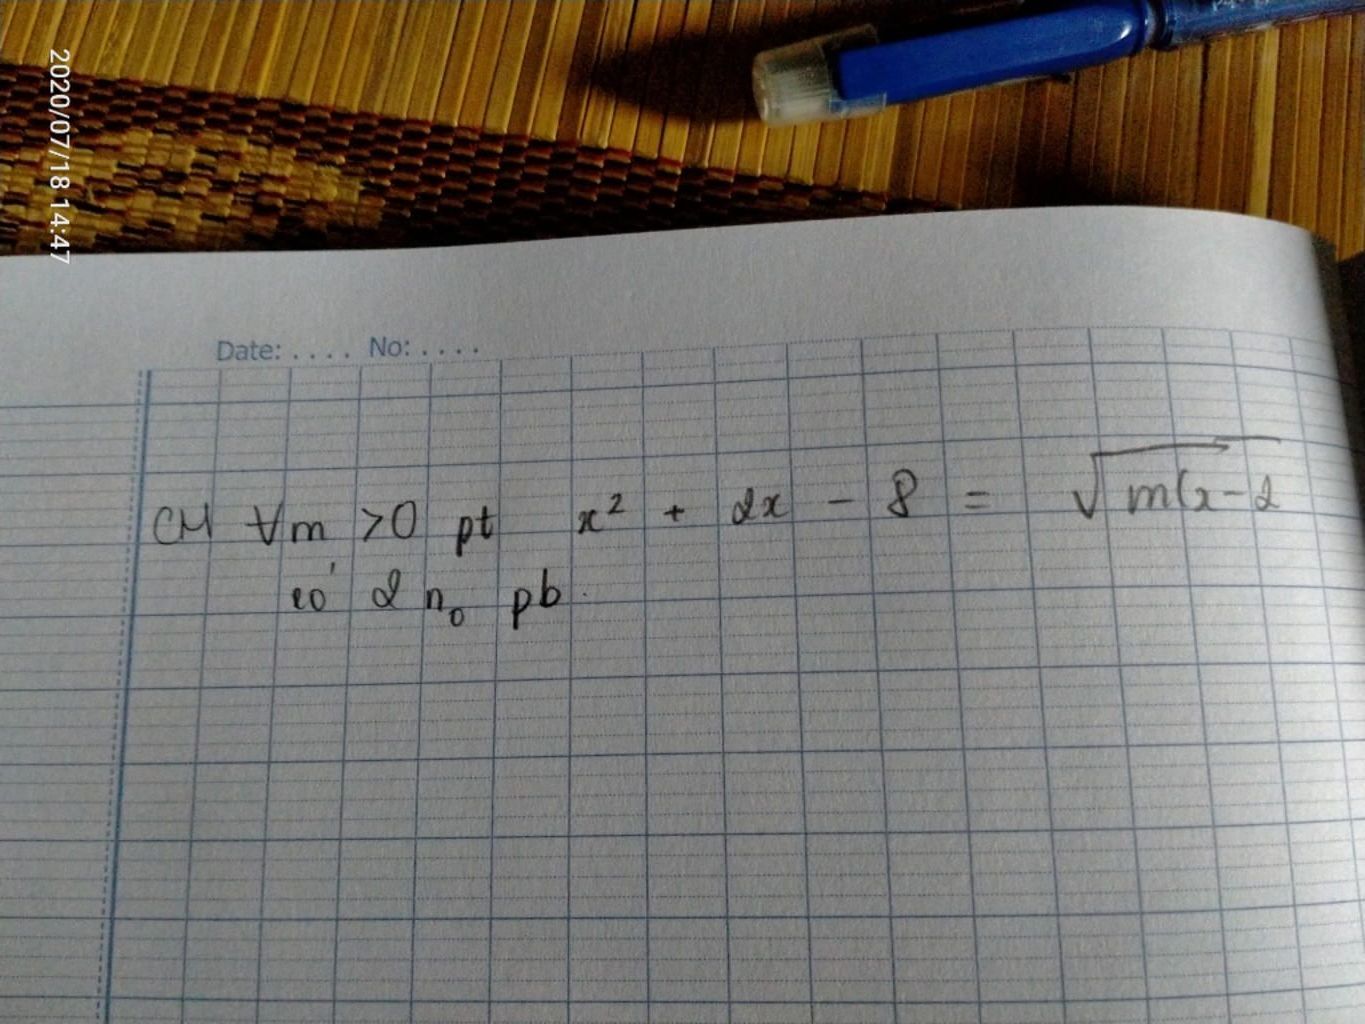 2020/07/18 14:47
Date: .... No: ....
CM ∀m >0 pt x² + 2x - 8 = √m(x-2
có 2 n₀ pb.